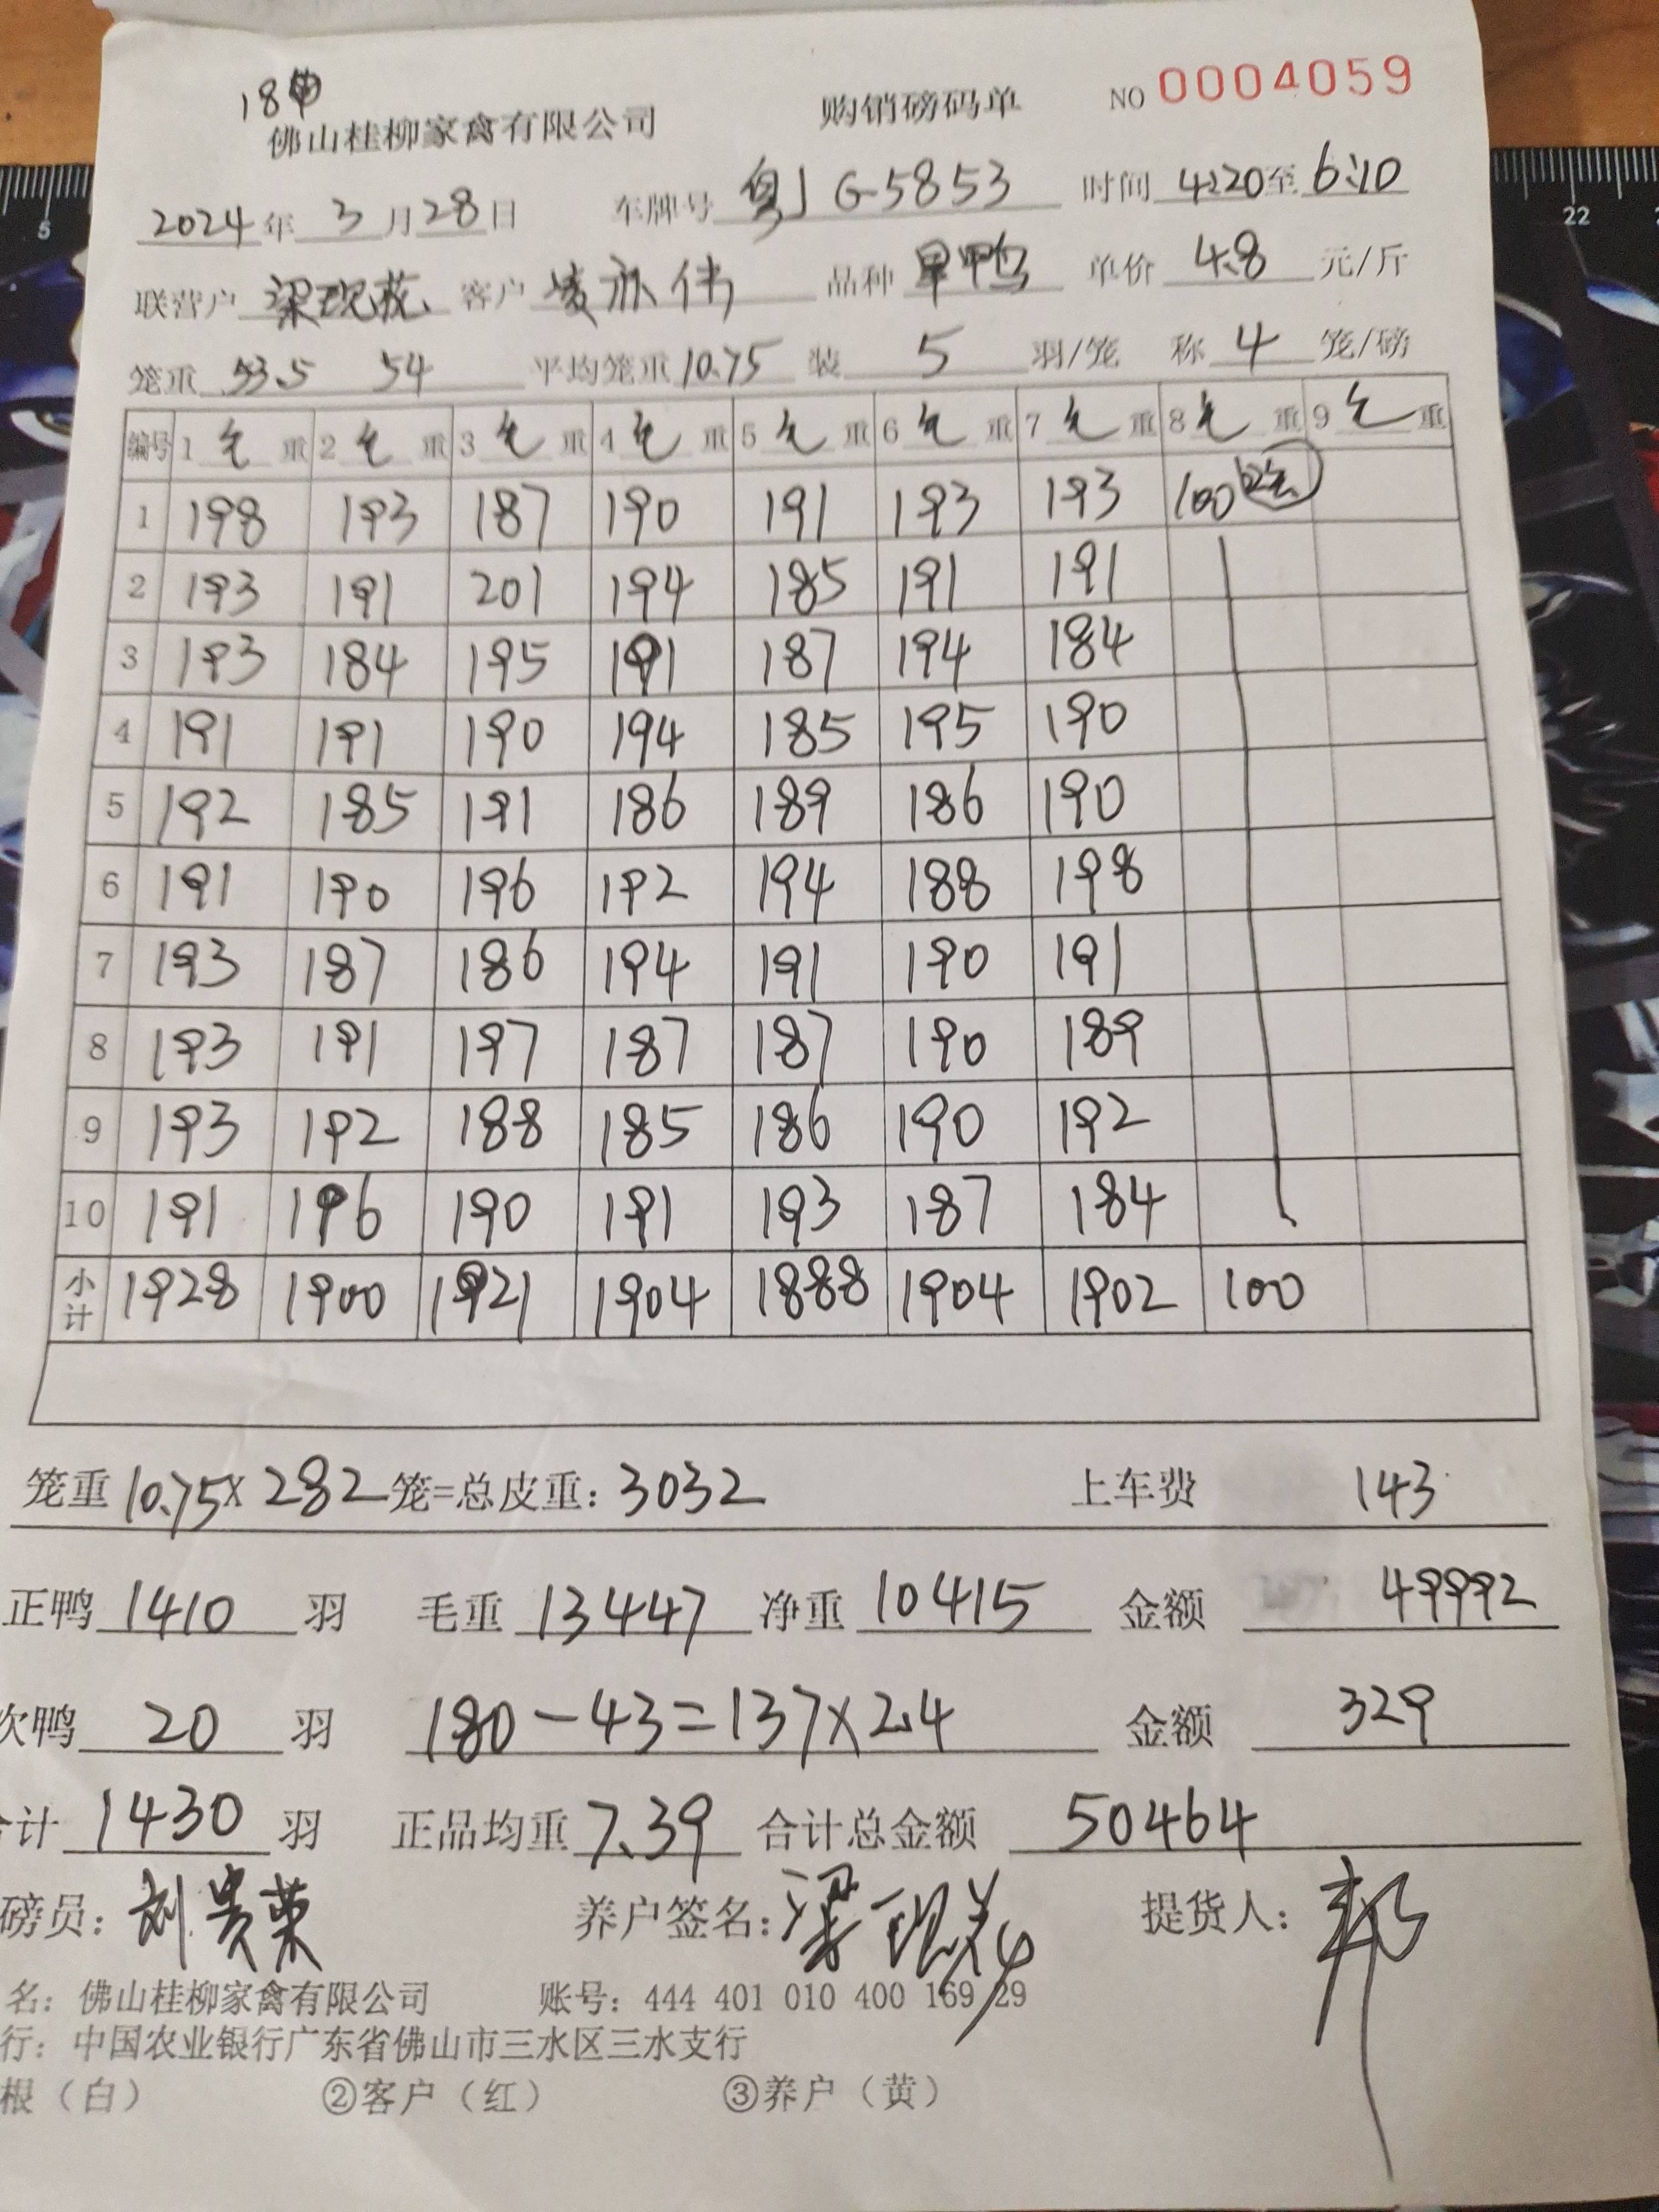 18
佛山桂柳家禽有限公司 购销磅码单 NO 0004059
2024年 3月28日 车牌号 粤J G-5853 时间 4:20至 6:10
联营户 梁现 客户 凌亦伟 品种 旱鸭 单价 4.8 元/斤
笼重 53.5 54 平均笼重 10.75 装 5 羽/笼 称 4 笼/磅
编号 1 毛 重 2 毛 重 3 毛 重 4 毛 重 5 毛 重 6 毛 重 7 毛 重 8 毛 重 9 毛 重
1 198 193 187 190 191 193 193 100
2 193 191 201 194 185 191 191
3 193 184 195 191 187 194 184
4 191 191 190 194 185 195 190
5 192 185 191 186 189 186 190
6 191 190 196 192 194 188 198
7 193 187 186 194 191 190 191
8 193 191 197 187 187 190 189
9 193 192 188 185 186 190 192
10 191 196 190 191 193 187 184
小计 1928 1900 1921 1904 1888 1904 1902 100
笼重 10.75 x 282 笼=总皮重: 3032 上车费 143
正鸭 1410 羽 毛重 13447 净重 10415 金额 49992
次鸭 20 羽 180-43=137x2.4 金额 329
合计 1430 羽 正品均重 7.39 合计总金额 50464
磅员: 刘贵荣 养户签名: 梁现 提货人: 邦
名: 佛山桂柳家禽有限公司 账号: 444 401 010 400 169 29
行: 中国农业银行广东省佛山市三水区三水支行
根（白） ②客户（红） ③养户（黄）